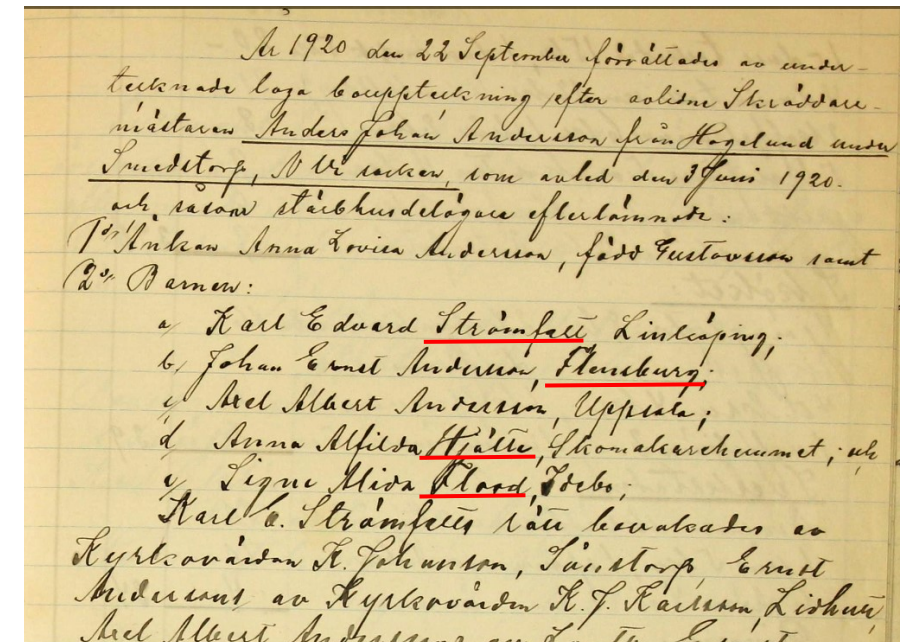 År 1920 den 22 September förrättades av under-
tecknade laga bouppteckning efter avlidne Skräddare-
mästaren Anders Johan Andersson från Hagelund under
Smedstorp, N Vi socken, som avled den 3 Juni 1920.
och såsom stärbhusdelägare efterlämnade:
1o/ Änkan Anna Lovisa Andersson, född Gustavsson samt
2o/ Barnen:
a/ Karl Edvard Strömfelt Linköping;
b/ Johan Ernst Andersson, Flensburg;
c/ Axel Albert Andersson, Uppsala;
d Anna Alfilda Hjälte, Skomakarehemmet; och
e/ Signe Alida Flood, Idebo;
Karl E. Strömfelts rätt bevakades av
Kyrkovärden K. Johanson, Sänstorp, Ernst
Anderssons av Kyrkovärden K. J. Karlsson,
Axel Albert